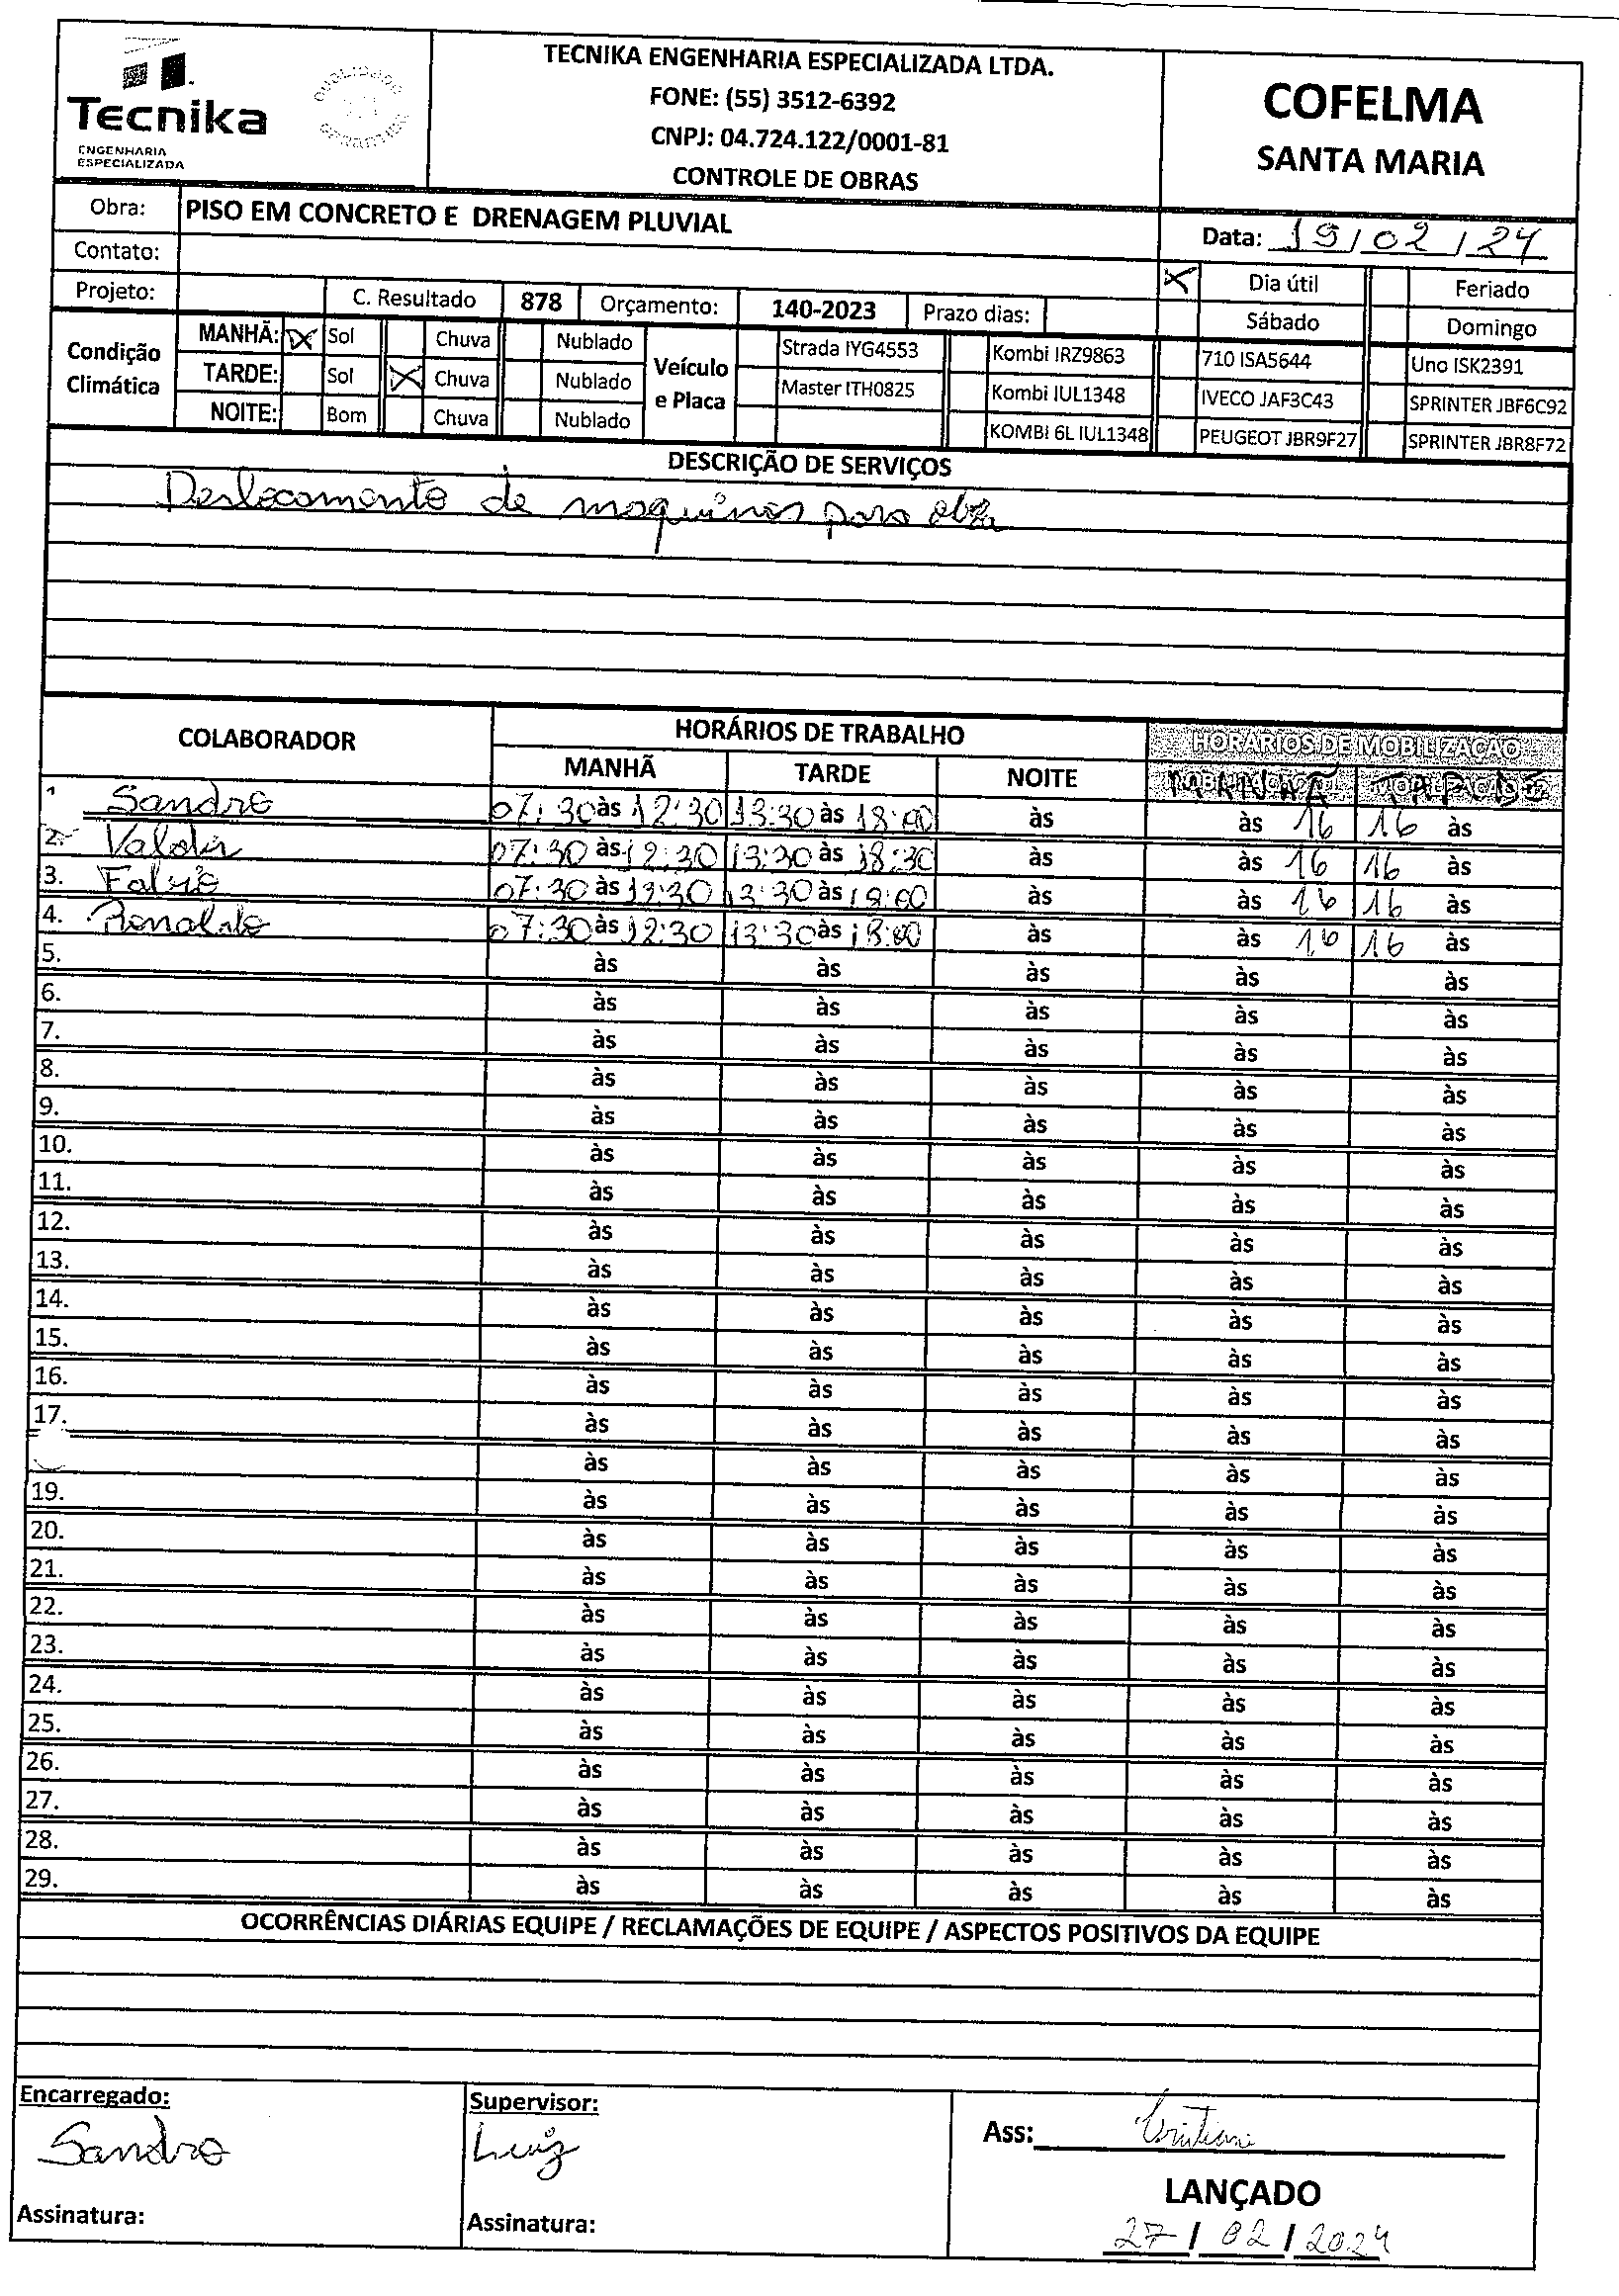 Tecnika
ENGENHARIA
ESPECIALIZADA
QUALIDADE
TECNIKA ENGENHARIA ESPECIALIZADA LTDA.
FONE: (55) 3512-6392
CNPJ: 04.724.122/0001-81
CONTROLE DE OBRAS
COFELMA
SANTA MARIA
Obra: PISO EM CONCRETO E DRENAGEM PLUVIAL
Data: 19/02/24
Contato:
X Dia útil Feriado
Projeto: C. Resultado 878 Orçamento: 140-2023 Prazo dias:
Sábado Domingo
Condição Climática
MANHÃ: X Sol Chuva Nublado
TARDE: Sol X Chuva Nublado
NOITE: Bom Chuva Nublado
Veículo e Placa
Strada IYG4553 Kombi IRZ9863 710 ISA5644 Uno ISK2391
Master ITH0825 Kombi IUL1348 IVECO JAF3C43 SPRINTER JBF6C92
KOMBI 6L IUL1348 PEUGEOT JBR9F27 SPRINTER JBR8F72
DESCRIÇÃO DE SERVIÇOS
Deslocamento de maquinas para obra
COLABORADOR HORÁRIOS DE TRABALHO HORÁRIOS DE MOBILIZAÇÃO
MANHÃ TARDE NOITE MANHÃ TARDE
1 Sandro 07:30 às 12:30 13:30 às 18:00 às às 16 16 às
2. Valdir 07:30 às 12:30 13:30 às 18:30 às às 16 16 às
3. Fabio 07:30 às 12:30 13:30 às 18:00 às às 16 16 às
4. Ronaldo 07:30 às 12:30 13:30 às 18:00 às às 16 16 às
5. às às às às às
6. às às às às às
7. às às às às às
8. às às às às às
9. às às às às às
10. às às às às às
11. às às às às às
12. às às às às às
13. às às às às às
14. às às às às às
15. às às às às às
16. às às às às às
17. às às às às às
às às às às às
19. às às às às às
20. às às às às às
21. às às às às às
22. às às às às às
23. às às às às às
24. às às às às às
25. às às às às às
26. às às às às às
27. às às às às às
28. às às às às às
29. às às às às às
OCORRÊNCIAS DIÁRIAS EQUIPE / RECLAMAÇÕES DE EQUIPE / ASPECTOS POSITIVOS DA EQUIPE
Encarregado:
Sandro
Assinatura:
Supervisor:
Luiz
Assinatura:
Ass: Cristiane
LANÇADO
27/02/2024